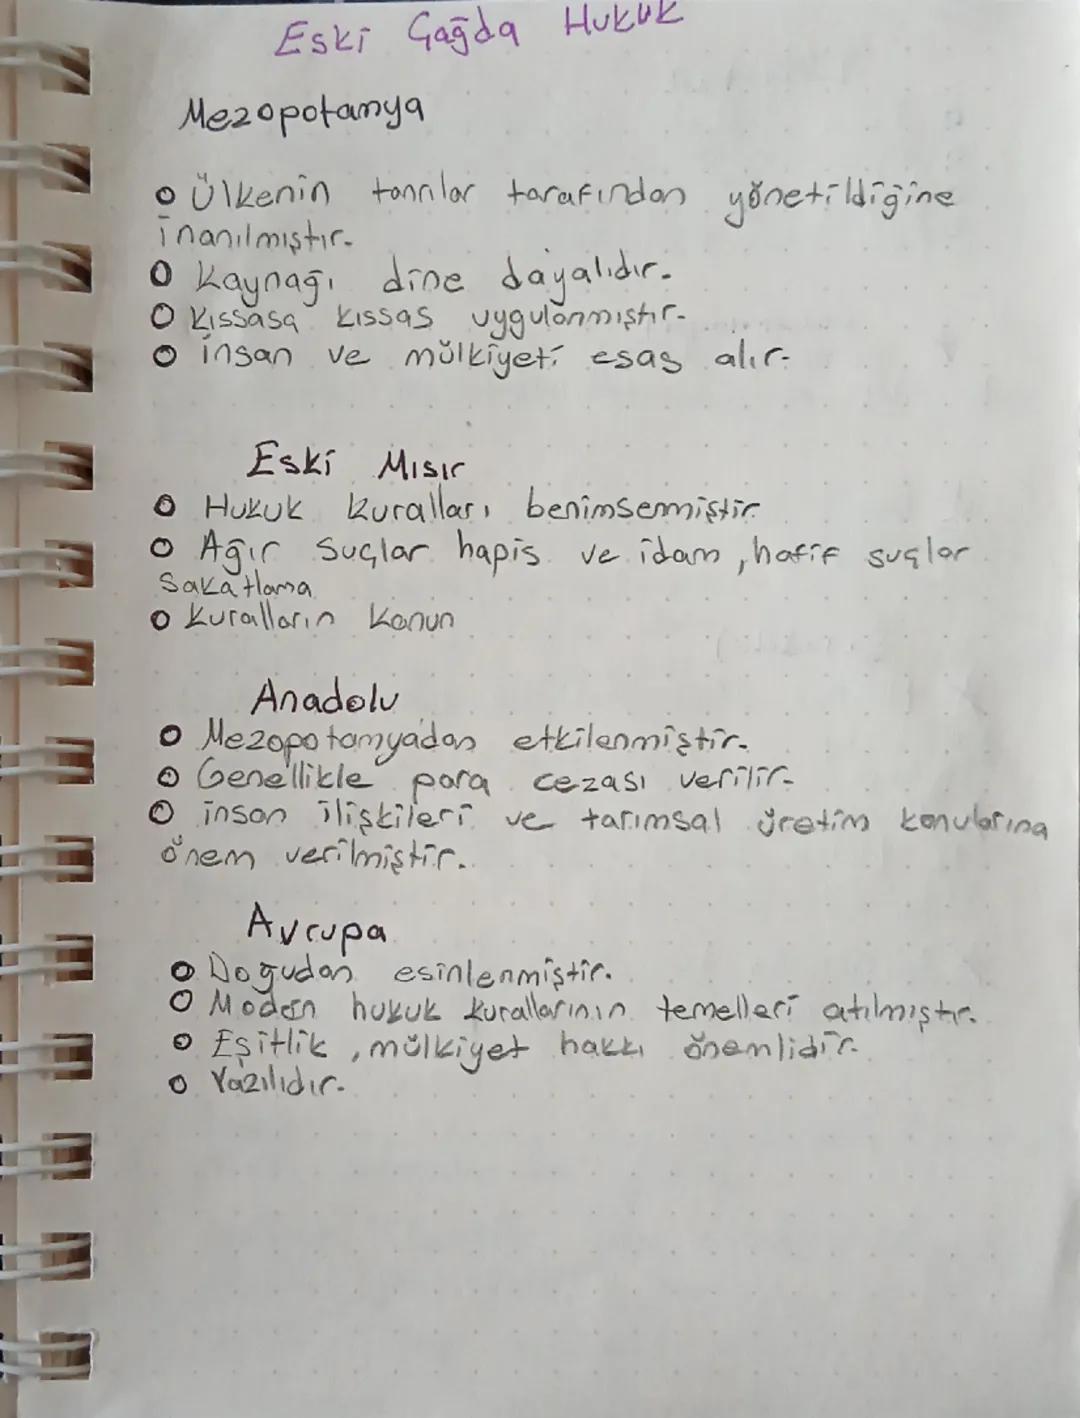 Eski Çağda Hukuk
Mezopotamya
o Ülkenin tanrılar tarafından yönetildiğine
inanılmıştır.
o Kaynağı dine dayalıdır.
o Kıssasa kıssas uygulanmıştır.
o insan ve mülkiyeti esas alır.
Eski Mısır
o Hukuk kuralları benimsenmiştir
o Ağır suçlar hapis ve idam, hafif suçlar
sakatlama
o Kuralların kanun
Anadolu
o Mezopotamyadan etkilenmiştir.
o Genellikle para cezası verilir.
o insan ilişkileri ve tarımsal üretim konularına
önem verilmiştir.
Avrupa
o Doğudan esinlenmiştir.
o Modern hukuk kurallarının temelleri atılmıştır.
o Eşitlik, mülkiyet hakkı önemlidir.
o Yazılıdır.